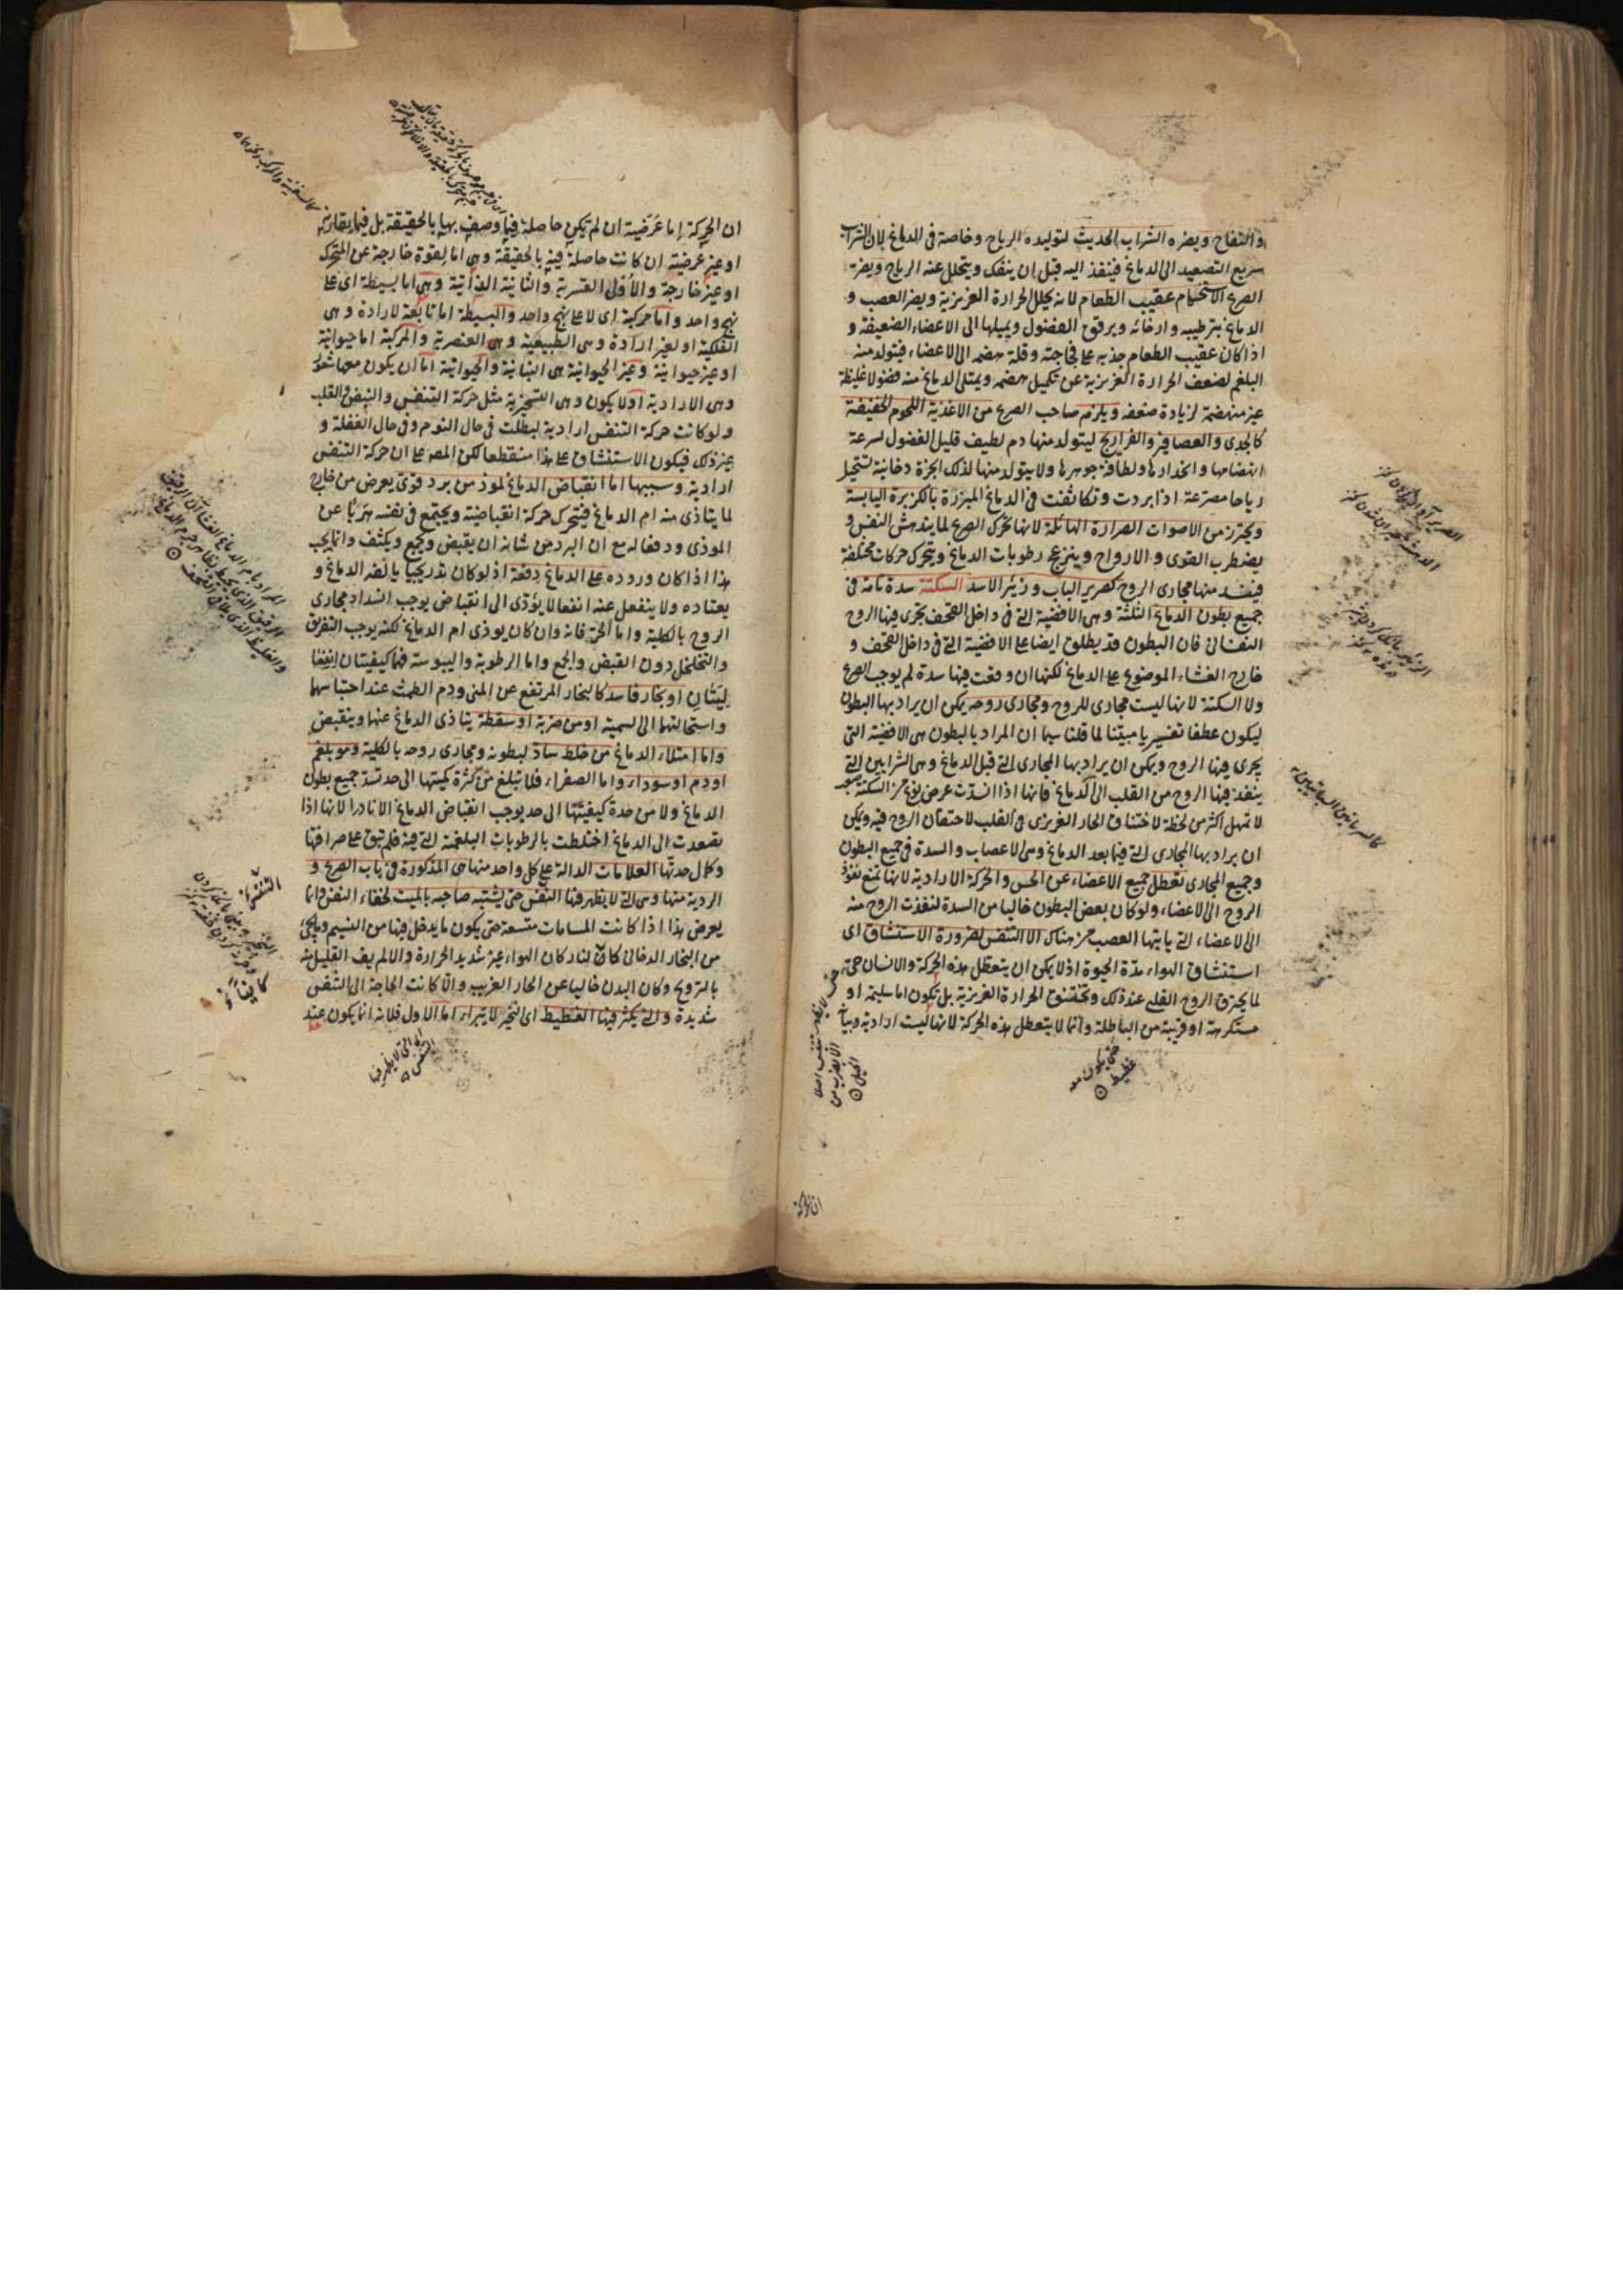 والتفاح ويضره الشراب الحديث لتوليده الرياح وخاصة في الدماغ لان الشراب
سريع التصعيد الى الدماغ فينفذ اليه قبل ان ينفك ويتحلل عنه الرياح ويضر
الصرع الاستحمام عقيب الطعام لانه يحلل الحرارة الغريزية ويضر العصب و
الدماغ بترطيبه وارخائه ويرقق الفضول ويميلها الى الاعضاء الضعيفة و
اذا كان عقيب الطعام جذبه على فجاجته وقلة هضمه الى الاعضاء فيتولد منه
البلغم لضعف الحرارة الغريزية عن تكميل هضمه ويمتلى الدماغ منه فضولا غليظة
غير منهضمة لزيادة ضعفه ويلزم صاحب الصرع من الاغذية اللحوم الخفيفة
كالجدى والعصافير والفراريج ليتولد منها دم لطيف قليل الفضول لسرعة
انهضامها وانحدارها ولطافة جوهرها ولا يتولد منها لذلك ابخرة دخانية تستحيل
رياحا مصرعة اذا بردت وتكاثفت في الدماغ المبزرة بالكزبرة اليابسة
ويحترز من الاصوات الصرارة الهائلة لانها تحرك الصرع لما يندهش النفس و
يضطرب القوى والارواح وينزعج رطوبات الدماغ ويتحرك حركات مختلفة
فينسد منها مجارى الروح كصرير الباب وزئير الاسد السكتة سدة تامة فى
جميع بطون الدماغ الثلثة وهى الافضية التى فى داخل القحف يجرى فيها الروح
النفسانى فان البطون قد يطلق ايضا على الافضية التى فى داخل القحف و
خارج الغشاء الموضوع على الدماغ لكنها ان وقعت فيها سدة لم يوجب الصرع
ولا السكتة لانها ليست مجارى للروح ومجارى روحه يمكن ان يراد بها البطون
ليكون عطفا تفسيريا مبيّنا لما قلنا سيما ان المراد بالبطون هى الافضية التى
يجرى فيها الروح ويمكن ان يراد بها المجارى التى قبل الدماغ وهى الشرايين التى
ينفذ فيها الروح من القلب الى الدماغ فانها اذا انسدّت عرض نوع من السكتة
لا تمهل اكثر من لحظة لاختناق الحار الغريزى فى القلب لاحتقان الروح فيه ويمكن
ان يراد بها المجارى التى فيما بعد الدماغ وهى الاعصاب والسدة فى جميع البطون
وجميع المجارى تعطل جميع الاعضاء عن الحس والحركة الارادية لانها تمنع نفوذ
الروح الى الاعضاء ولو كان بعض البطون خاليا من السدة لنفذت الروح منه
الى الاعضاء التى ياتيها العصب من هناك الا التنفس لضرورة الاستنشاق اى
استنشاق الهواء مدّة الحيوة اذ لا يمكن ان يتعطل هذه الحركة والانسان حىّ
لما يحترق الروح القلبى عند ذلك وتختنق الحرارة الغريزية بل تكون اما سليمة او
مستكرهة او قريبة من الباطلة وانما لا يتعطل هذه الحركة لانها ليست ارادية وبيانه
حتى يكون معه
غطيط
ان الحركة
ان الحركة اما عرضية ان لم تكن حاصلة فيما وصف بها بالحقيقة بل فيما يقارنه
او غير عرضية ان كانت حاصلة فيه بالحقيقة وهى اما لقوة خارجة عن المتحرك
او غير خارجة والاولى القسرية والثانية الذاتية وهى اما بسيطة اى على
نهج واحد واما مركبة اى لا على نهج واحد والبسيطة اما تابعة لارادة وهى
الفلكية او لغير ارادة وهى الطبيعية وهى العنصرية والمركبة اما حيوانية
او غير حيوانية وغير الحيوانية هى النباتية والحيوانية اما ان يكون معها شعور
وهى الارادية او لا يكون وهى التسخيرية مثل حركة التنفس والنبض والقلب
ولو كانت حركة التنفس ارادية لبطلت فى حال النوم وفى حال الغفلة و
غير ذلك فيكون الاستنشاق على هذا منقطعا لكن المصر على ان حركة التنفس
ارادية وسببها اما انقباض الدماغ لموذ من برد قوى يعرض من خارج
لما يتاذى منه ام الدماغ فيتحرك حركة انقباضية ويجتمع فى نفسه هربًا عن
الموذى ودفعا له مع ان البرد من شانه ان يقبض ويجمع ويكثف وانما يجب
هذا اذا كان وروده على الدماغ دفعة اذ لو كان تدريجيا يالفه الدماغ و
يعتاده ولا ينفعل عنه انفعالا يؤدى الى انقباض يوجب انسداد مجارى
الروح بالكلية واما الحر فانه وان كان يوذى ام الدماغ لكنه يوجب التفريق
والتخلخل دون القبض والجمع واما الرطوبة واليبوسة فهما كيفيتان
ليّنتان او بخار فاسد كالبخار المرتفع عن المنى ودم الطمث عند احتباسهما
واستحالتهما الى السمية او من ضربة او سقطة يتاذى الدماغ عنها وينقبض
واما امتلاء الدماغ من خلط سادّ لبطونه ومجارى روحه بالكلية وهو بلغم
او دم او سوداء واما الصفراء فلا تبلغ من كثرة كميتها الى حد تسد جميع بطون
الدماغ ولا من حدة كيفيتها الى حد يوجب انقباض الدماغ الا نادرا لانها اذا
تصعدت الى الدماغ اختلطت بالرطوبات البلغمية التى فيه فلم تبق على صرافتها
وكمال حدتها العلامات الدالة على كل واحد منها هى المذكورة فى باب الصرع و
الردية منها وهى التى لا يظهر فيها النفس حتى يشتبه صاحبه بالميت لخفاء النفس وانما
يعرض هذا اذا كانت المسامات متسعة حتى يكون ما يدخل فيها من النسيم
من البخار الدخانى كافيًا لنا وكان الهواء غير شديد الحرارة والا لم يف القليل منه
بالترويح وكان البدن خاليا عن الحار الغريب والّا كانت الحاجة الى التنفس
شديدة والتى يكثر فيها الغطيط اى النخير لا تبرا اما الاول فلانه انما يكون عند